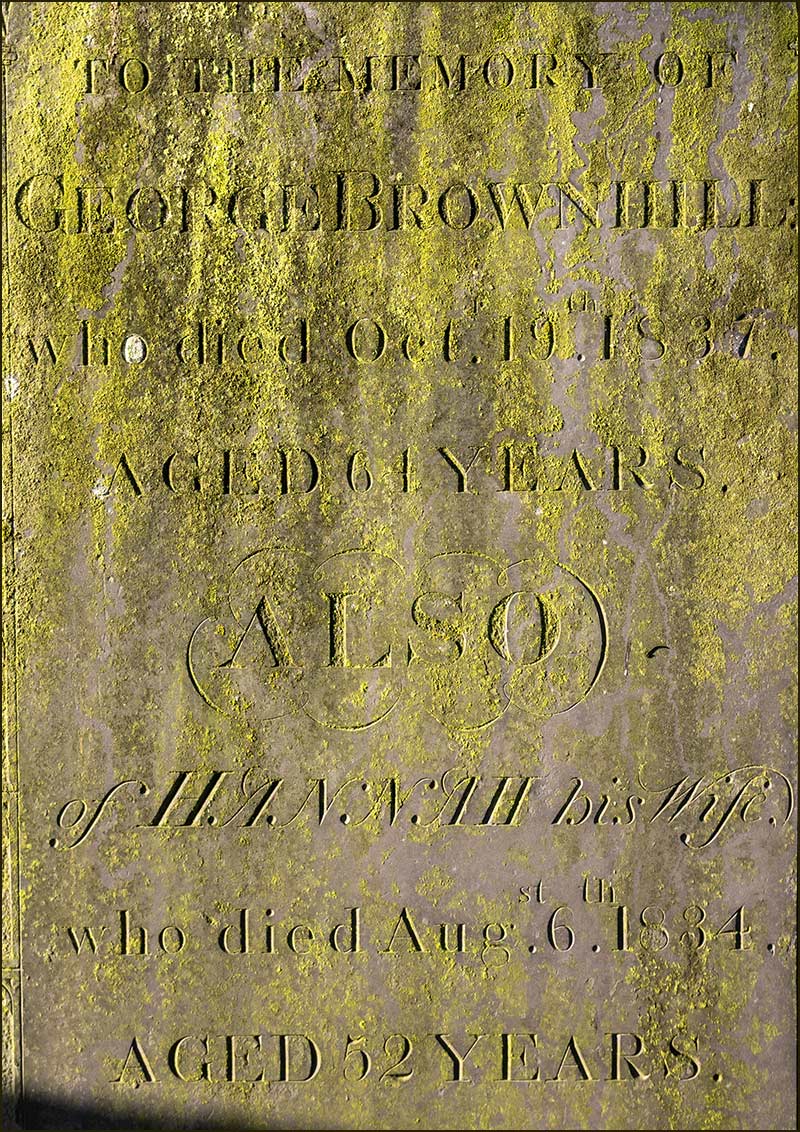 TO THE MEMORY OF
GEORGE BROWNHILL:
who died Octr. 19th. 1837.
AGED 64 YEARS.
ALSO
of HANNAH his Wife,
who died Augst. 6th. 1834.
AGED 52 YEARS.